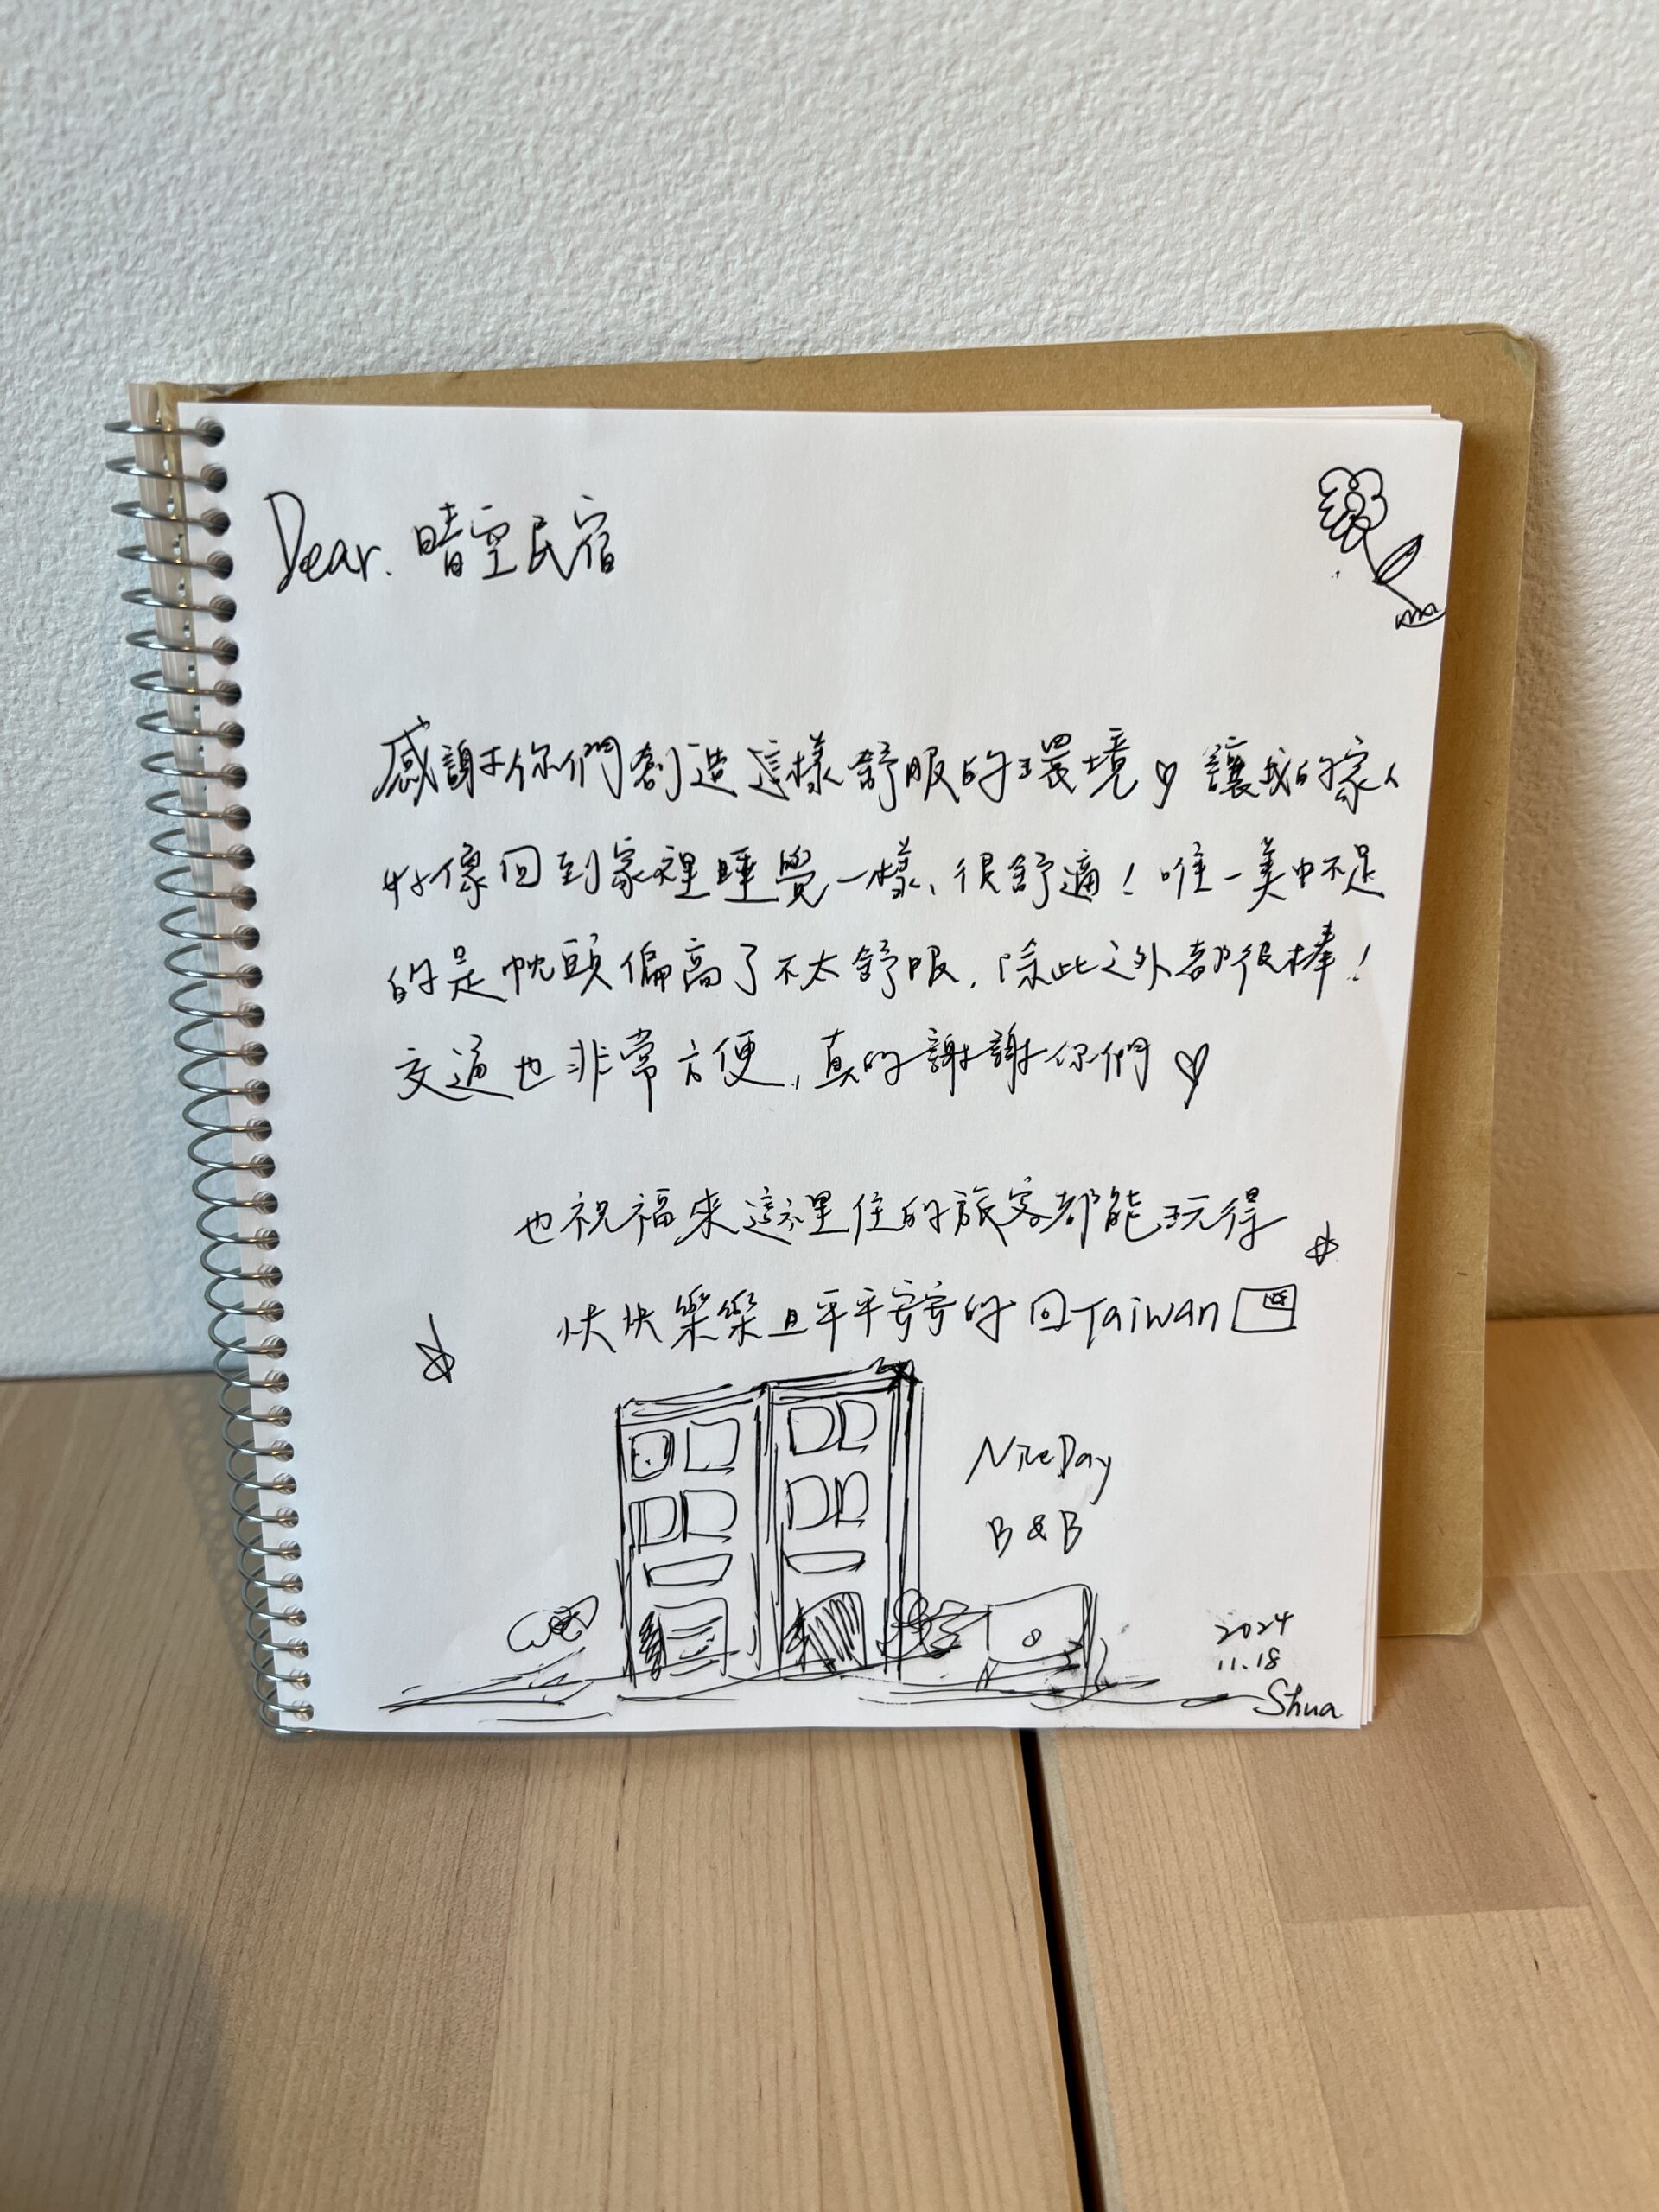 Dear. 晴空民宿
感謝你們創造這樣舒服的環境♡ 讓我的家人
好像回到家裡睡覺一樣、很舒適！唯一美中不足
的是枕頭偏高了不太舒服，除此之外都很棒！
交通也非常方便，真的謝謝你們♡
也祝福來這裡住的旅客都能玩得
快快樂樂且平平安安的回Taiwan
NiceDay
B & B
2024
11.18
Shua